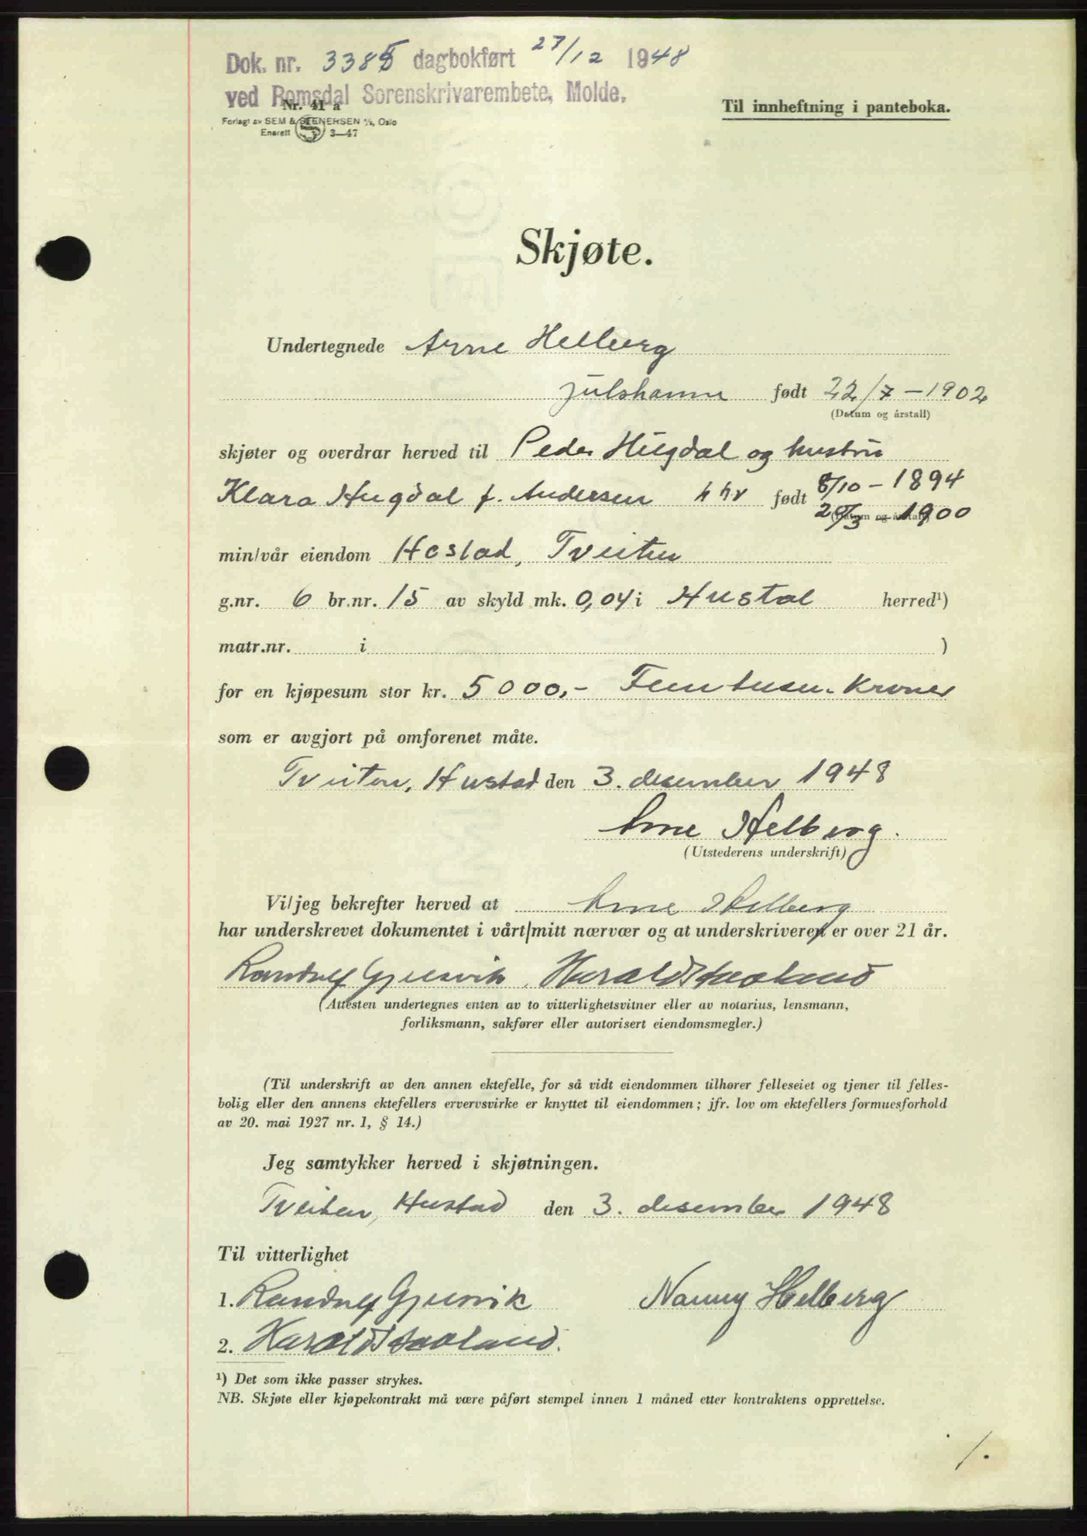 Dok. nr. 3385 dagbokført 27/12 1948
ved Romsdal Sorenskrivarembete, Molde.
Nr. 41 a
Forlagt av SEM & STENERSEN A/S, Oslo
Enerett S 3—47
Til innheftning i panteboka.
Skjøte.
Undertegnede Arne Helberg
Julshamn født 22/7 – 1902
(Datum og årstall)
skjøter og overdrar herved til Peder Hugdal og hustru
Klara Hugdal f. Andersen hhv født 8/10 – 1894
(Datum og årstall) 1900
min/vår eiendom Hostad, Tveiten
g.nr. 6 br.nr. 15 av skyld mk. 0,04 i Hustad herred¹)
matr.nr. i )
for en kjøpesum stor kr. 5000,- Femtusen Kroner
som er avgjort på omforenet måte.
Tveiten, Hustad den 3. desember 1948
Arne Helberg.
(Utstederens underskrift)
Vi/jeg bekrefter herved at Arne Helberg
har underskrevet dokumentet i vårt/mitt nærvær og at underskriveren er over 21 år.
Randulf Gjersvik. Harald
(Attesten undertegnes enten av to vitterlighetsvitner eller av notarius, lensmann,
forliksmann, sakfører eller autorisert eiendomsmegler.)
(Til underskrift av den annen ektefelle, for så vidt eiendommen tilhører felleseiet og tjener til felles-
bolig eller den annens ektefellers ervervsvirke er knyttet til eiendommen; jfr. lov om ektefellers formuesforhold
av 20. mai 1927 nr. 1, § 14.)
Jeg samtykker herved i skjøtningen.
Tveiten, Hustad den 3. desember 1948
Til vitterlighet
1. Randulf Gjersvik Nanny Helberg
2. Harald
¹) Det som ikke passer strykes.
NB. Skjøte eller kjøpekontrakt må være påført stempel innen 1 måned etter kontraktens opprettelse.
1.